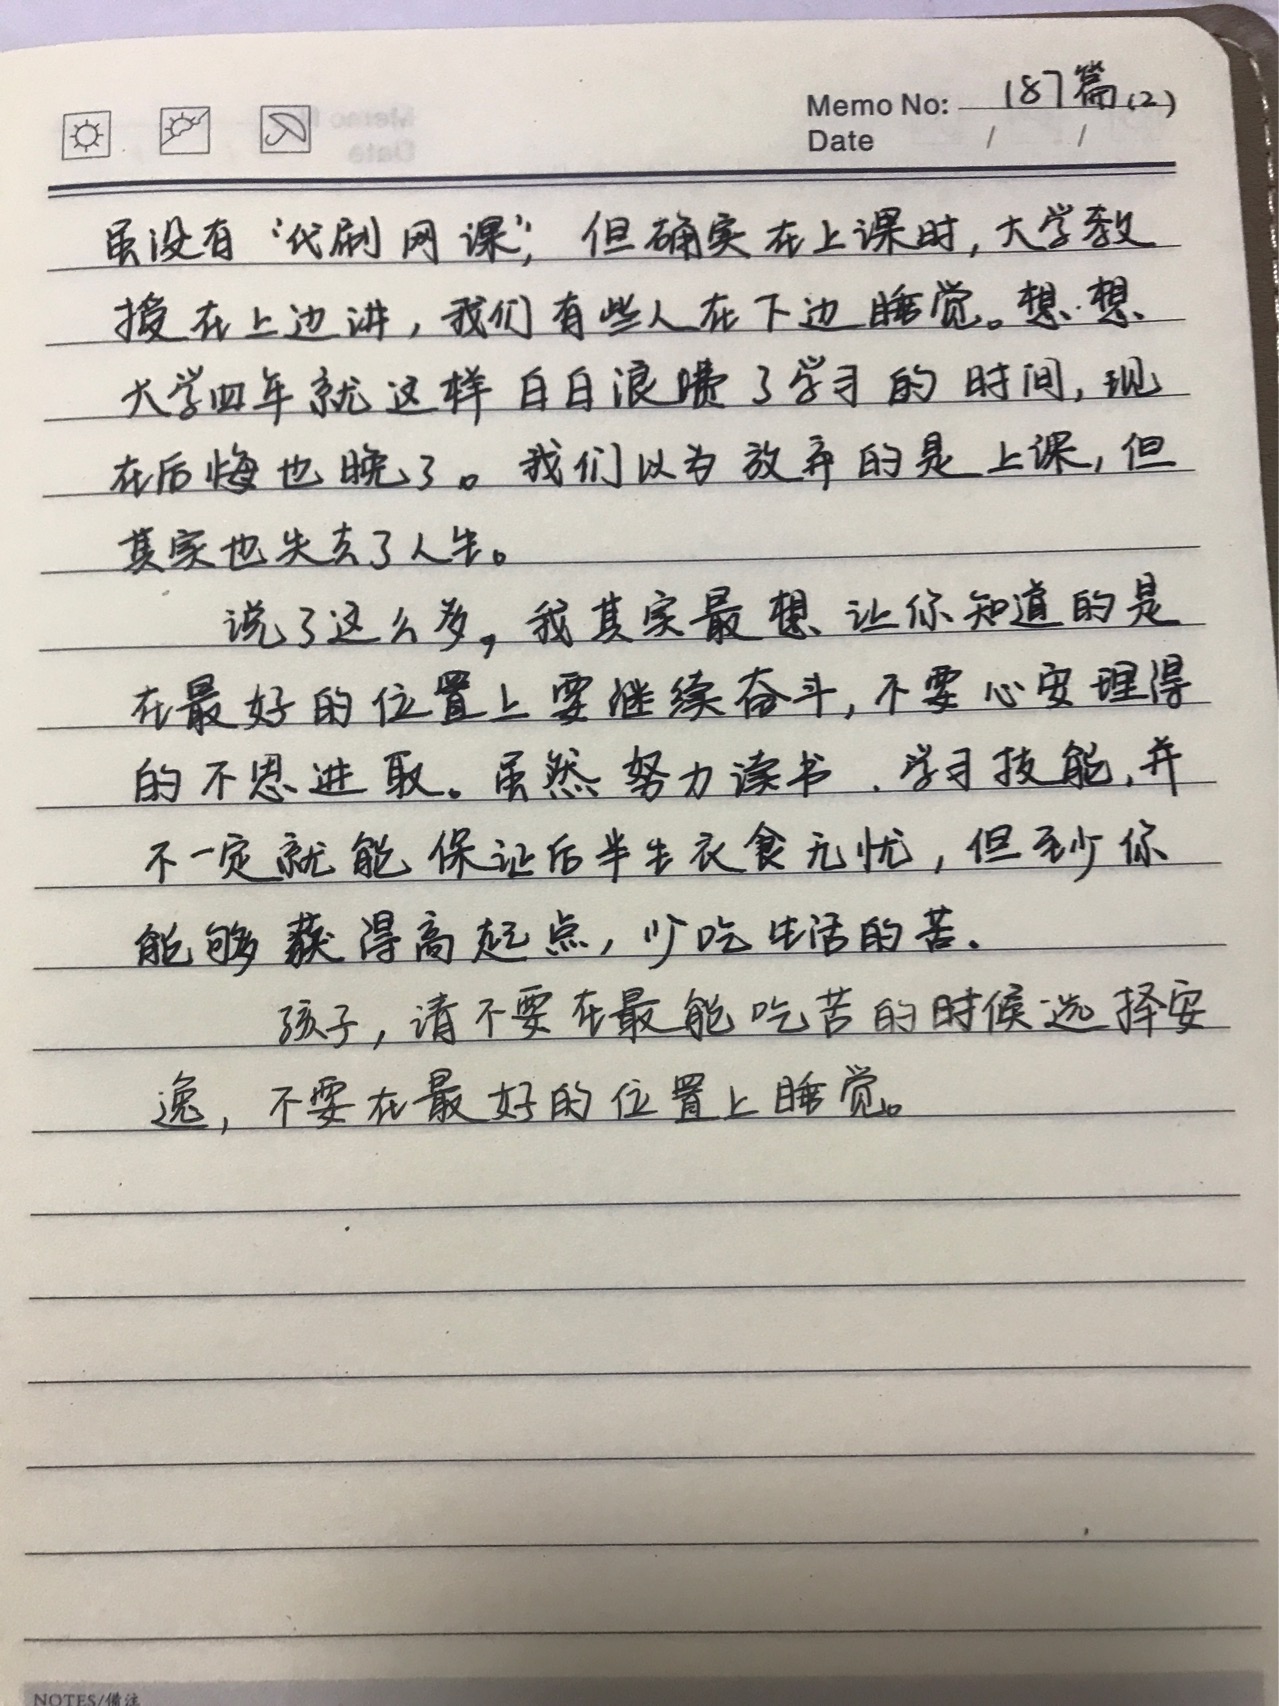 Memo No: 187篇(2)
Date / /
虽没有“代刷网课”，但确实在上课时，大学教
授在上边讲，我们有些人在下边睡觉。想想
大学四年就这样白白浪费了学习的时间，现
在后悔也晚了。我们以为放弃的是上课，但
其实也失去了人生。
说了这么多，我其实最想让你知道的是
在最好的位置上要继续奋斗，不要心安理得
的不思进取。虽然努力读书、学习技能，并
不一定就能保证后半生衣食无忧，但至少你
能够获得高起点，少吃生活的苦。
孩子，请不要在最能吃苦的时候选择安
逸，不要在最好的位置上睡觉。
NOTES/備注